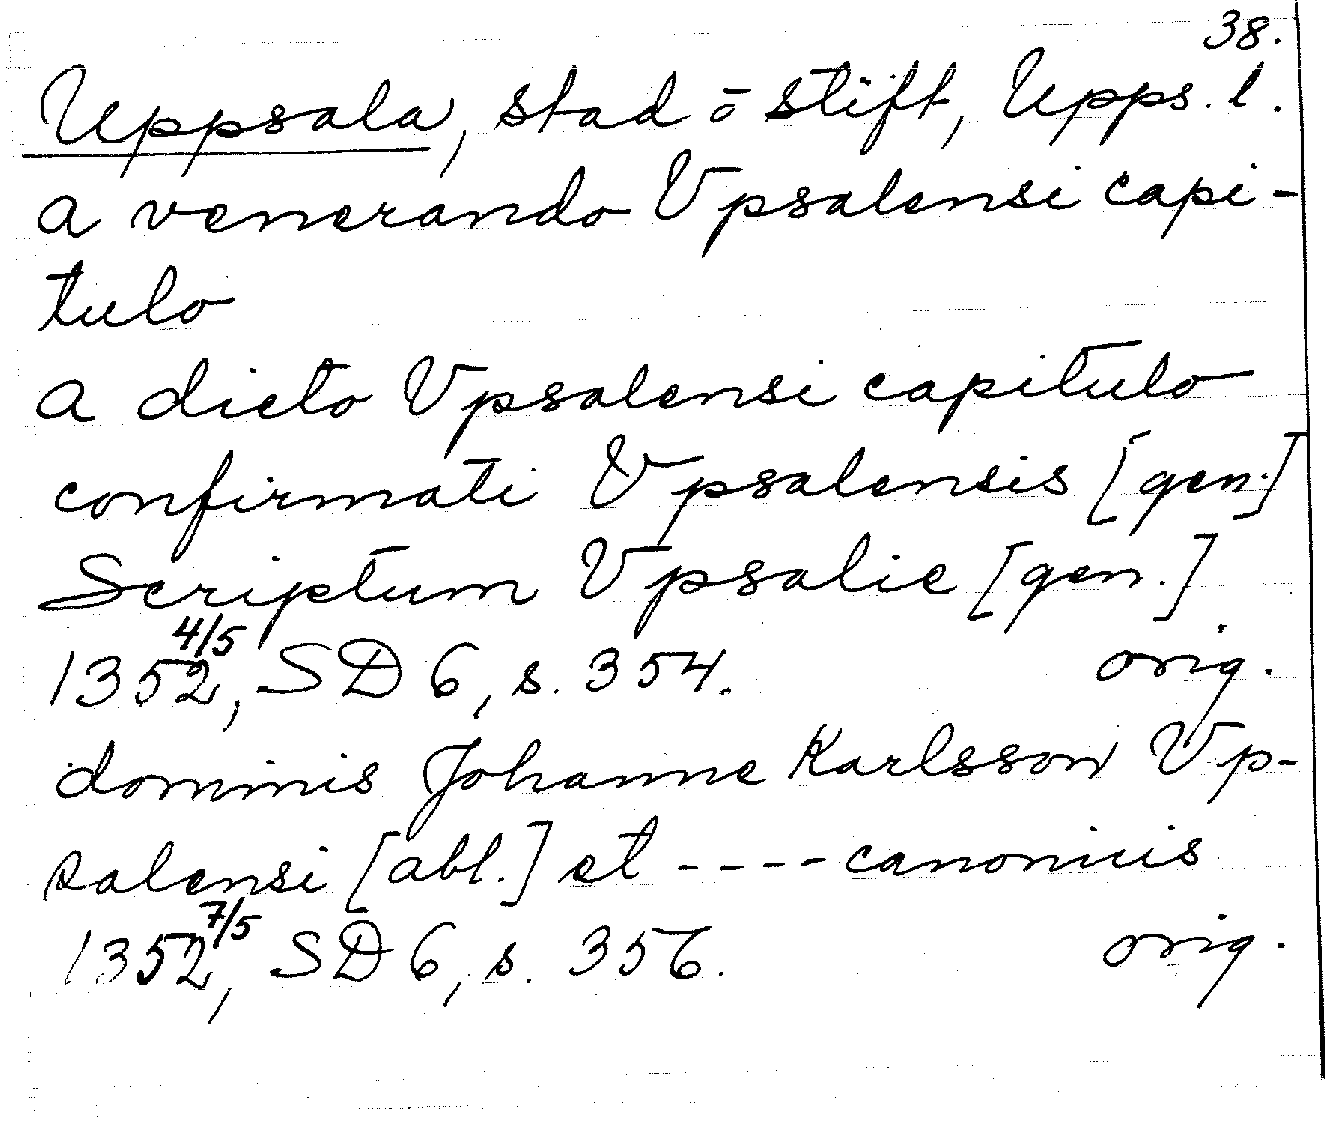 38.
Uppsala, stad ō stift, Upps. l.
a venerando Vpsalensi capi-
tulo
a dicto Vpsalensi capitulo
confirmati Vpsalensis [gen.]
Scriptum Vpsalie [gen.]
1352 4/5, SD 6, s. 354. orig.
dominis Johanne Karlsson Vp-
salensi [abl.] et ---- canonicis
1352 7/5, SD 6, s. 356. orig.